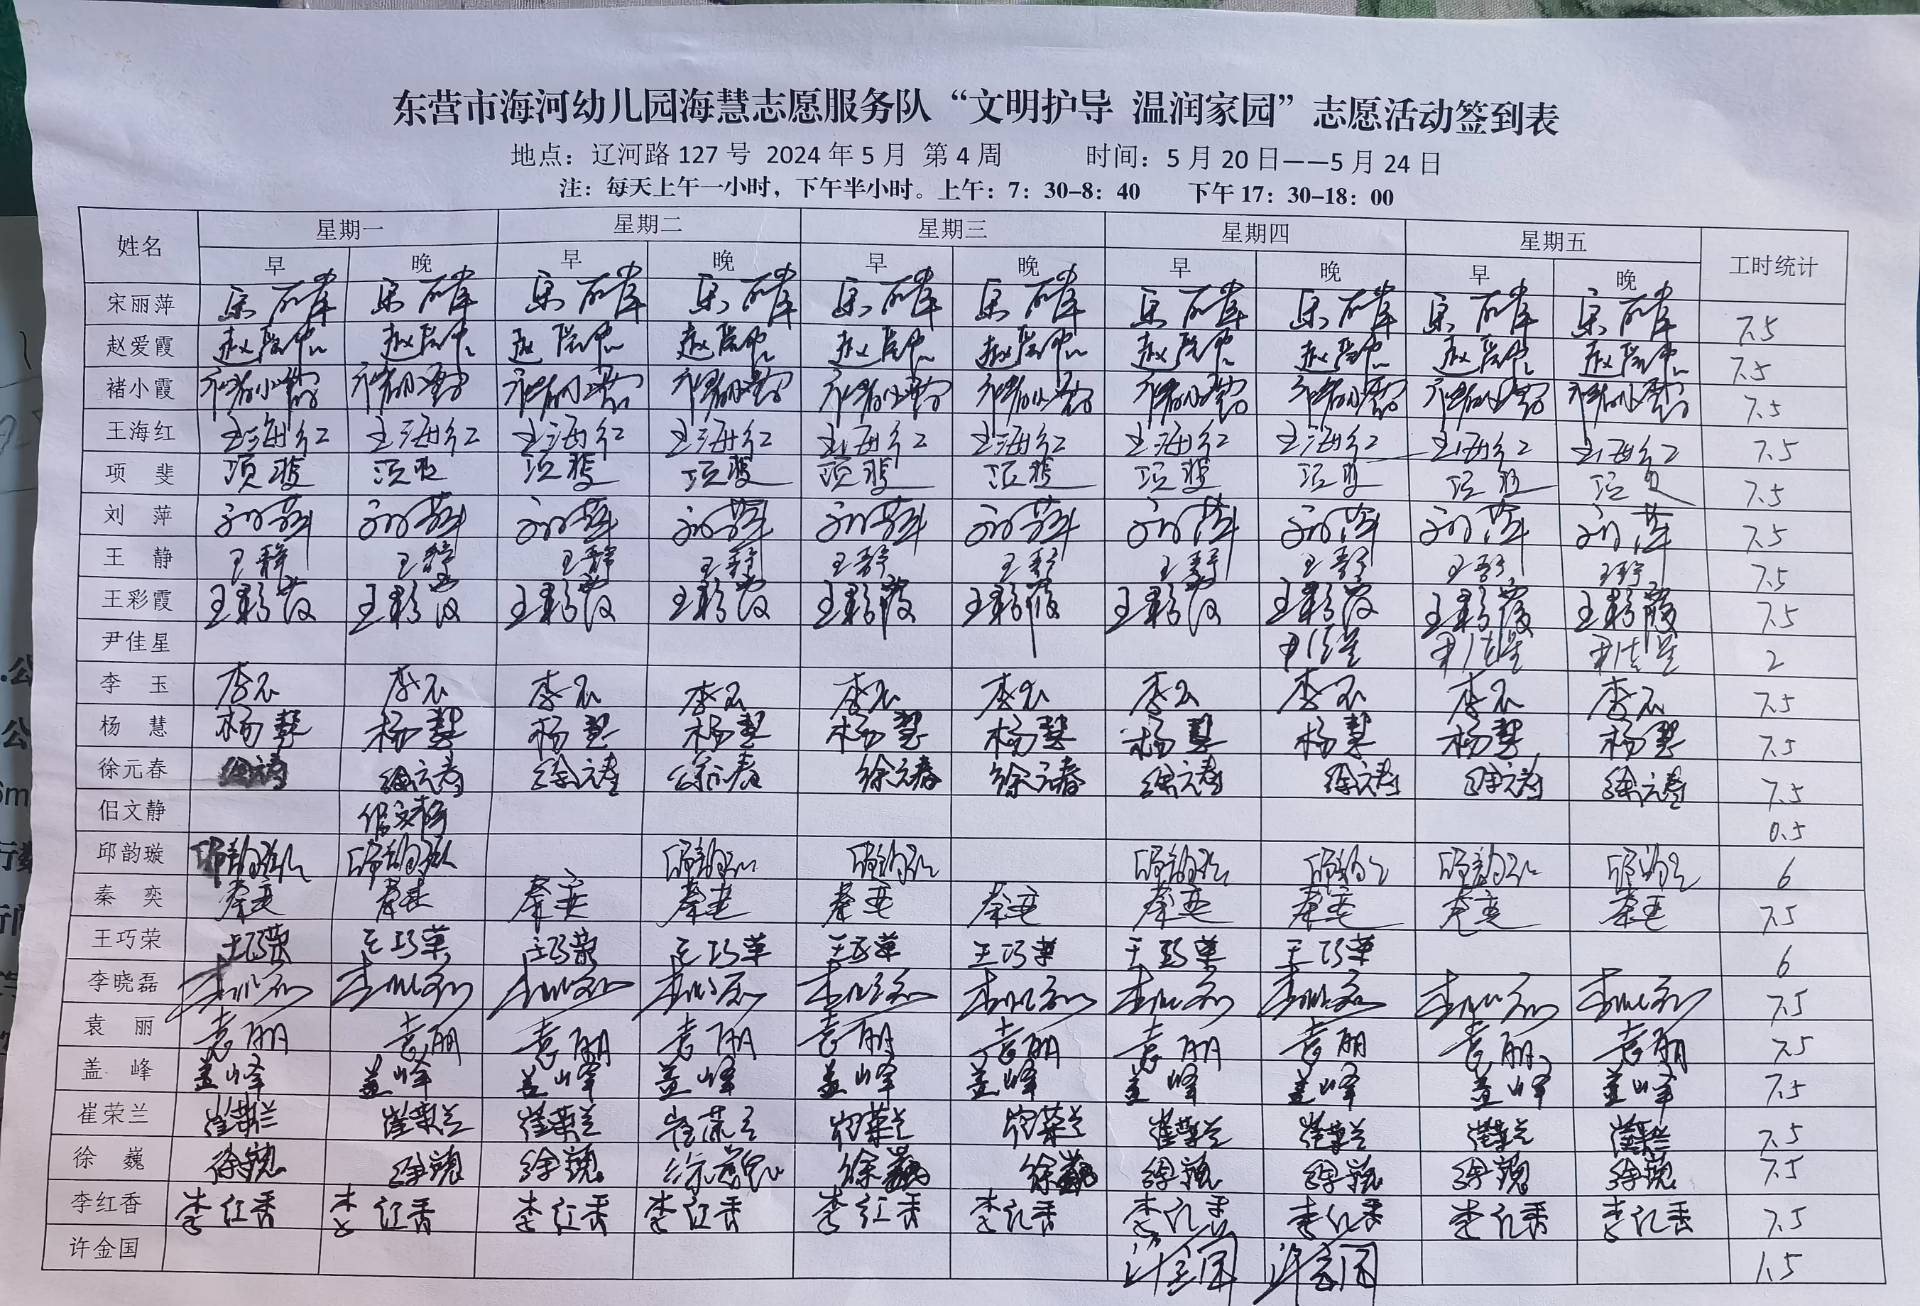 东营市海河幼儿园海慧志愿服务队“文明护导 温润家园”志愿活动签到表
地点：辽河路 127 号 2024 年 5 月 第 4 周 时间：5 月 20 日——5 月 24 日
注：每天上午一小时，下午半小时。上午：7：30-8：40 下午 17：30-18：00
姓名 星期一 星期二 星期三 星期四 星期五 工时统计
早 晚 早 晚 早 晚 早 晚 早 晚
宋丽萍 宋丽萍 宋丽萍 宋丽萍 宋丽萍 宋丽萍 宋丽萍 宋丽萍 宋丽萍 宋丽萍 宋丽萍 7.5
赵爱霞 赵爱霞 赵爱霞 赵爱霞 赵爱霞 赵爱霞 赵爱霞 赵爱霞 赵爱霞 赵爱霞 赵爱霞 7.5
褚小霞 褚小霞 褚小霞 褚小霞 褚小霞 褚小霞 褚小霞 褚小霞 褚小霞 褚小霞 褚小霞 7.5
王海红 王海红 王海红 王海红 王海红 王海红 王海红 王海红 王海红 王海红 王海红 7.5
项 斐 项斐 项斐 项斐 项斐 项斐 项斐 项斐 项斐 项斐 项斐 7.5
刘 萍 刘萍 刘萍 刘萍 刘萍 刘萍 刘萍 刘萍 刘萍 刘萍 刘萍 7.5
王 静 王静 王静 王静 王静 王静 王静 王静 王静 王静 王静 7.5
王彩霞 王彩霞 王彩霞 王彩霞 王彩霞 王彩霞 王彩霞 王彩霞 王彩霞 王彩霞 王彩霞 7.5
尹佳星 尹佳星 尹佳星 尹佳星 2
李 玉 李玉 李玉 李玉 李玉 李玉 李玉 李玉 李玉 李玉 李玉 7.5
杨 慧 杨慧 杨慧 杨慧 杨慧 杨慧 杨慧 杨慧 杨慧 杨慧 杨慧 7.5
徐元春 徐元春 徐元春 徐元春 徐元春 徐元春 徐元春 徐元春 徐元春 徐元春 徐元春 7.5
佀文静 佀文静 0.5
邱韵璇 邱韵璇 邱韵璇 邱韵璇 邱韵璇 邱韵璇 邱韵璇 邱韵璇 邱韵璇 6
秦 奕 秦奕 秦奕 秦奕 秦奕 秦奕 秦奕 秦奕 秦奕 秦奕 秦奕 7.5
王巧荣 王巧荣 王巧荣 王巧荣 王巧荣 王巧荣 王巧荣 王巧荣 王巧荣 6
李晓磊 李晓磊 李晓磊 李晓磊 李晓磊 李晓磊 李晓磊 李晓磊 李晓磊 李晓磊 李晓磊 7.5
袁 丽 袁丽 袁丽 袁丽 袁丽 袁丽 袁丽 袁丽 袁丽 袁丽 袁丽 7.5
盖 峰 盖峰 盖峰 盖峰 盖峰 盖峰 盖峰 盖峰 盖峰 盖峰 盖峰 7.5
崔荣兰 崔荣兰 崔荣兰 崔荣兰 崔荣兰 崔荣兰 崔荣兰 崔荣兰 崔荣兰 崔荣兰 崔荣兰 7.5
徐 巍 徐巍 徐巍 徐巍 徐巍 徐巍 徐巍 徐巍 徐巍 徐巍 徐巍 7.5
李红香 李红香 李红香 李红香 李红香 李红香 李红香 李红香 李红香 李红香 李红香 7.5
许金国 许金国 许金国 1.5